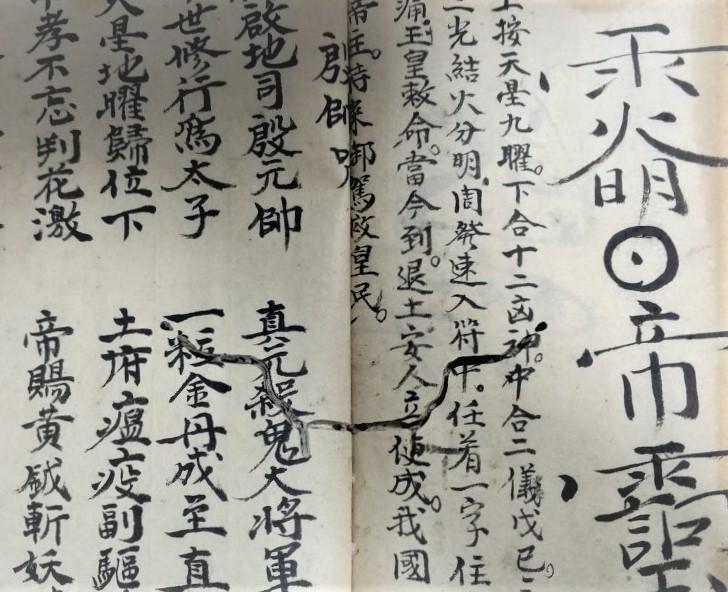 火明⊙帝
上按天星九曜。下合十二凶神。中合二儀戊己。三
光結火分明。周発速入符中。任着一字住
玉皇敕命。當今到。退土安人立便成。我國
帝主。特操御駕啟皇民。
殷帥咒
啟地司殷元帥 真元殺鬼大将軍
世修行為太子 一粒金丹成至真
天星地曜歸位下 土府瘟疫副驅
孝不忘判花激 帝賜黃鉞斬妖